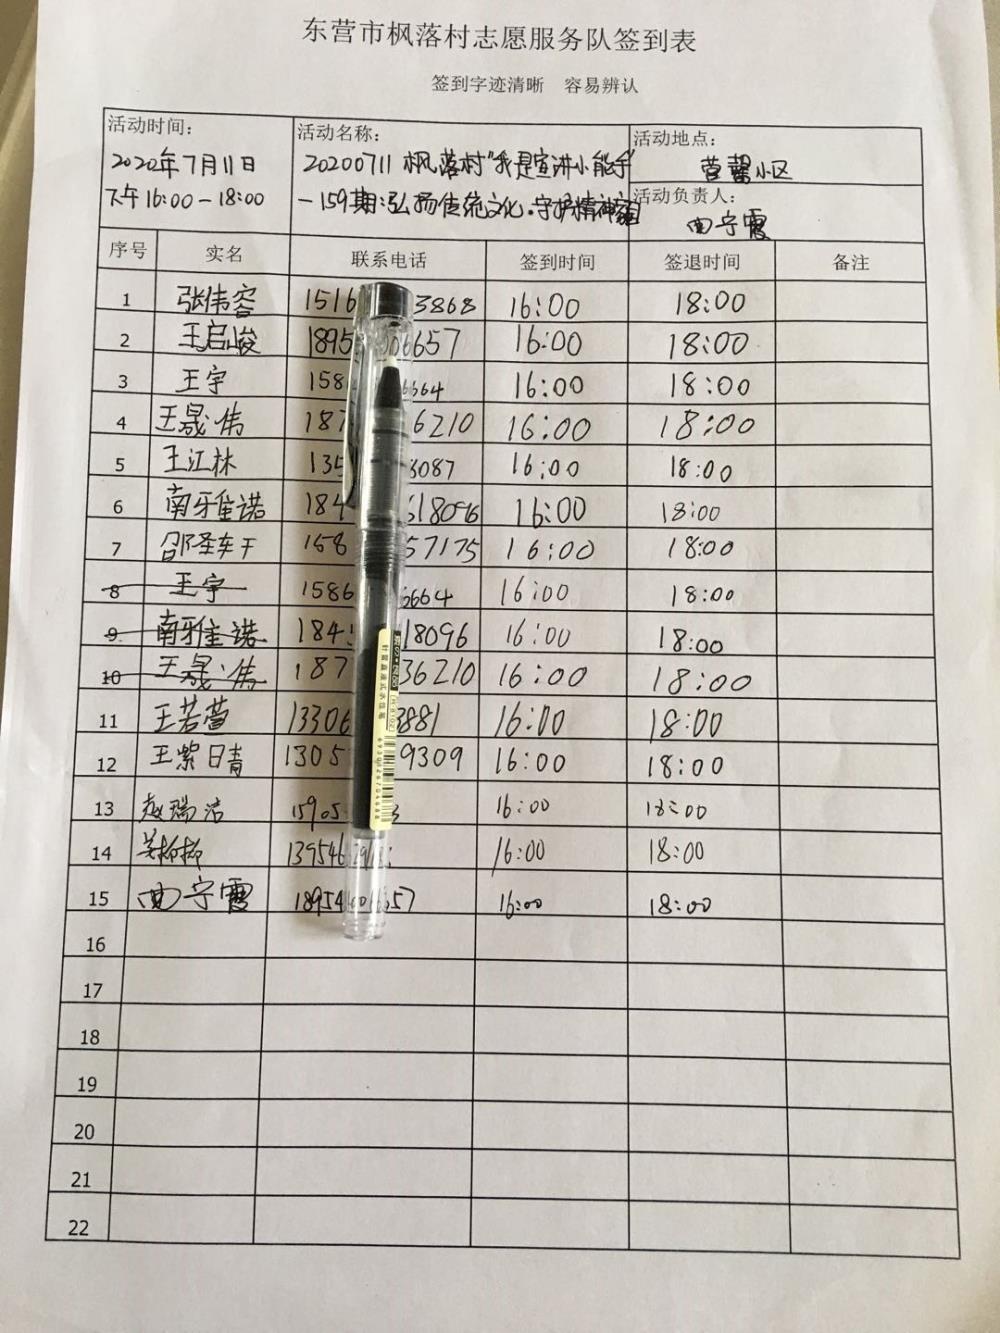 东营市枫落村志愿服务队签到表
签到字迹清晰 容易辨认
活动时间:
2020年7月11日
下午16:00-18:00
活动名称:
20200711枫落村"我是宣讲小能手"
-159期:弘扬传统文化.守护精神家园
活动地点:
营馨小区
活动负责人:
曲宁霞
序号 实名 联系电话 签到时间 签退时间 备注
1 张伟容 1516 3868 16:00 18:00
2 王启峻 1895 6657 16:00 18:00
3 王宇 158 6664 16:00 18:00
4 王晟伟 187 6210 16:00 18:00
5 王江林 135 3087 16:00 18:00
6 南雅诺 184 618096 16:00 18:00
7 邵圣轩 158 57175 16:00 18:00
8 王宇 1586 6664 16:00 18:00
9. 南雅诺 184 18096 16:00 18:00
10 王晟伟 187 36210 16:00 18:00
11 王若萱 13306 3881 16:00 18:00
12 王紫晴 1305 9309 16:00 18:00
13 赵瑞洁 15905 16:00 18:00
14 柳 13954 16:00 18:00
15 曲宁霞 18954 657 16:00 18:00
16
17
18
19
20
21
22